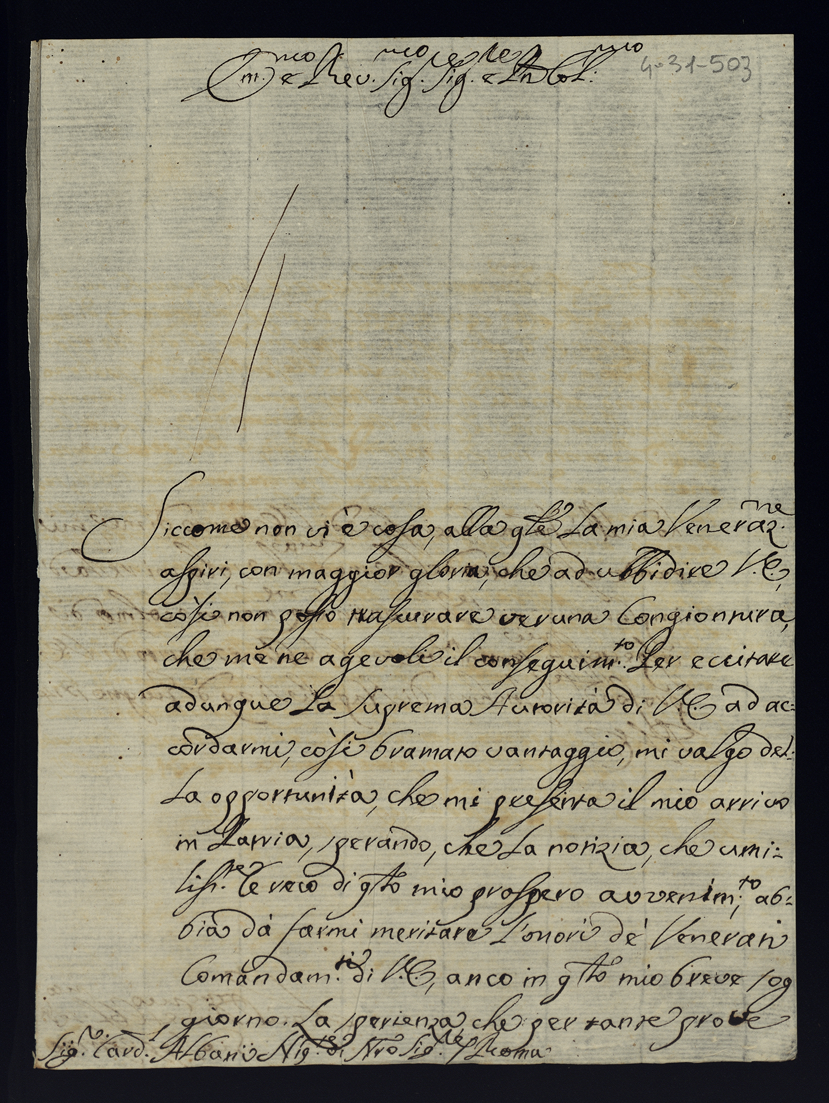 Em.mo e Rev.mo Sig.re Sig.re e Pad. Col.mo
4-31-503
Siccome non vi è cosa, alla q.le La mia Veneraz.ne
aspiri, con maggior gloria, che ad ubbidire V. E.,
così non posso trascurare veruna Congiontura,
che me ne agevoli il conseguim.to Per eccitare
adunque La suprema Autorità di V. E. ad ac-
cordarmi, così bramato vantaggio, mi valgo del-
La opportunità, che mi presenta il mio arrivo
in Patria, sperando, che La notizia, che umi-
liss.te Le reco di q.to mio prospero avvenim.to, ab-
bia dà farmi meritare l'onori de' Venerati
Comandam.ti di V. E., anco in q.to mio breve sog
giorno. La sperienza, che per tante prove
Sig.r Card.l Albani di Nro Sig.re Roma